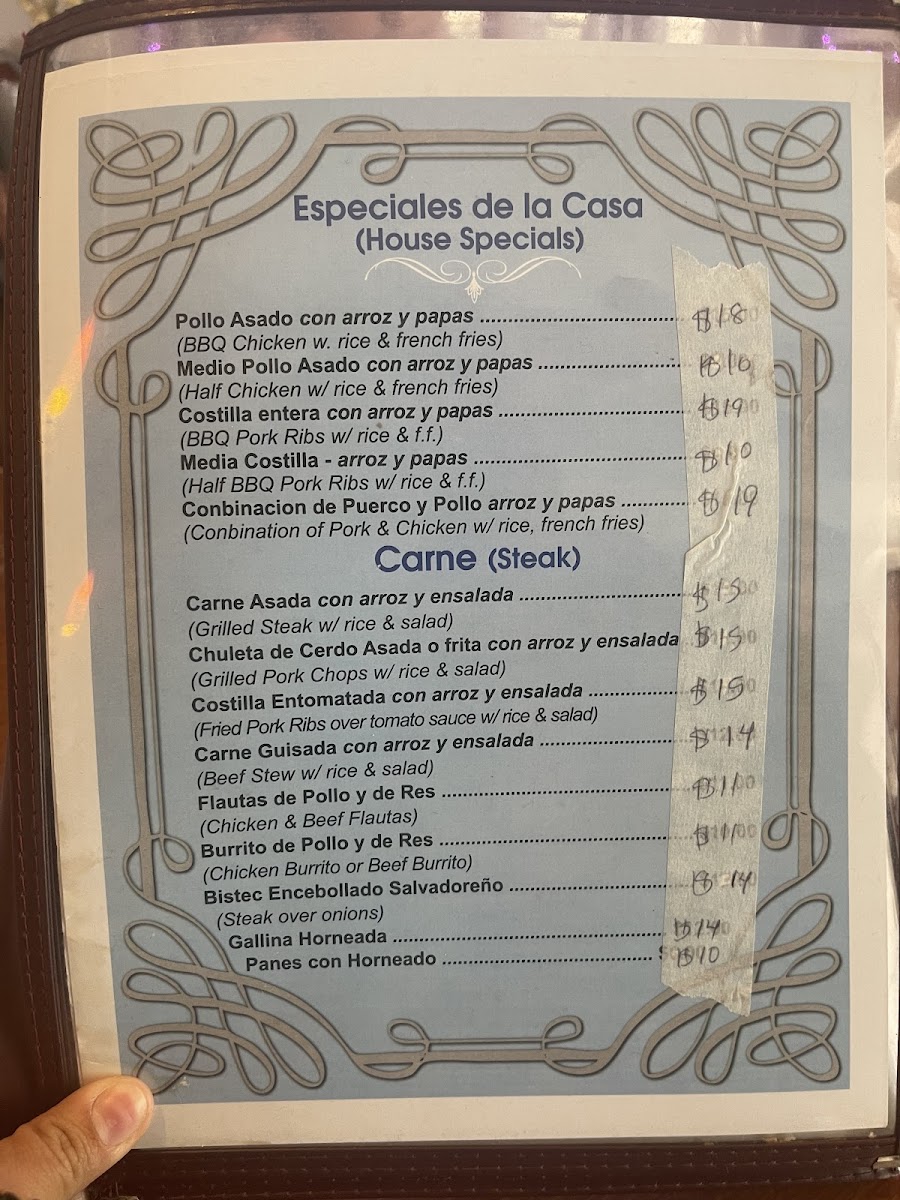 Especiales de la Casa
(House Specials)
Pollo Asado con arroz y papas ........ $18
(BBQ Chicken w. rice & french fries)
Medio Pollo Asado con arroz y papas ........ $10
(Half Chicken w/ rice & french fries)
Costilla entera con arroz y papas ........ $19
(BBQ Pork Ribs w/ rice & f.f.)
Media Costilla - arroz y papas ........ $10
(Half BBQ Pork Ribs w/ rice & f.f.)
Conbinacion de Puerco y Pollo arroz y papas ........ $19
(Conbination of Pork & Chicken w/ rice, french fries)
Carne (Steak)
Carne Asada con arroz y ensalada ........ $15
(Grilled Steak w/ rice & salad)
Chuleta de Cerdo Asada o frita con arroz y ensalada $15
(Grilled Pork Chops w/ rice & salad)
Costilla Entomatada con arroz y ensalada ........ $15
(Fried Pork Ribs over tomato sauce w/ rice & salad)
Carne Guisada con arroz y ensalada ........ $14
(Beef Stew w/ rice & salad)
Flautas de Pollo y de Res ........ $11
(Chicken & Beef Flautas)
Burrito de Pollo y de Res ........ $11
(Chicken Burrito or Beef Burrito)
Bistec Encebollado Salvadoreño ........ $14
(Steak over onions)
Gallina Horneada ........ $14
Panes con Horneado ........ $10